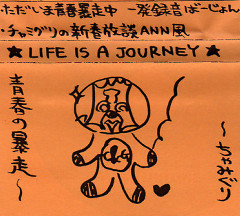 ただいま青春暴走中 〜発録音ばーじょん
・チャミグリの新春放談ANN風
★ LIFE IS A JOURNEY ★
青春の暴走〜